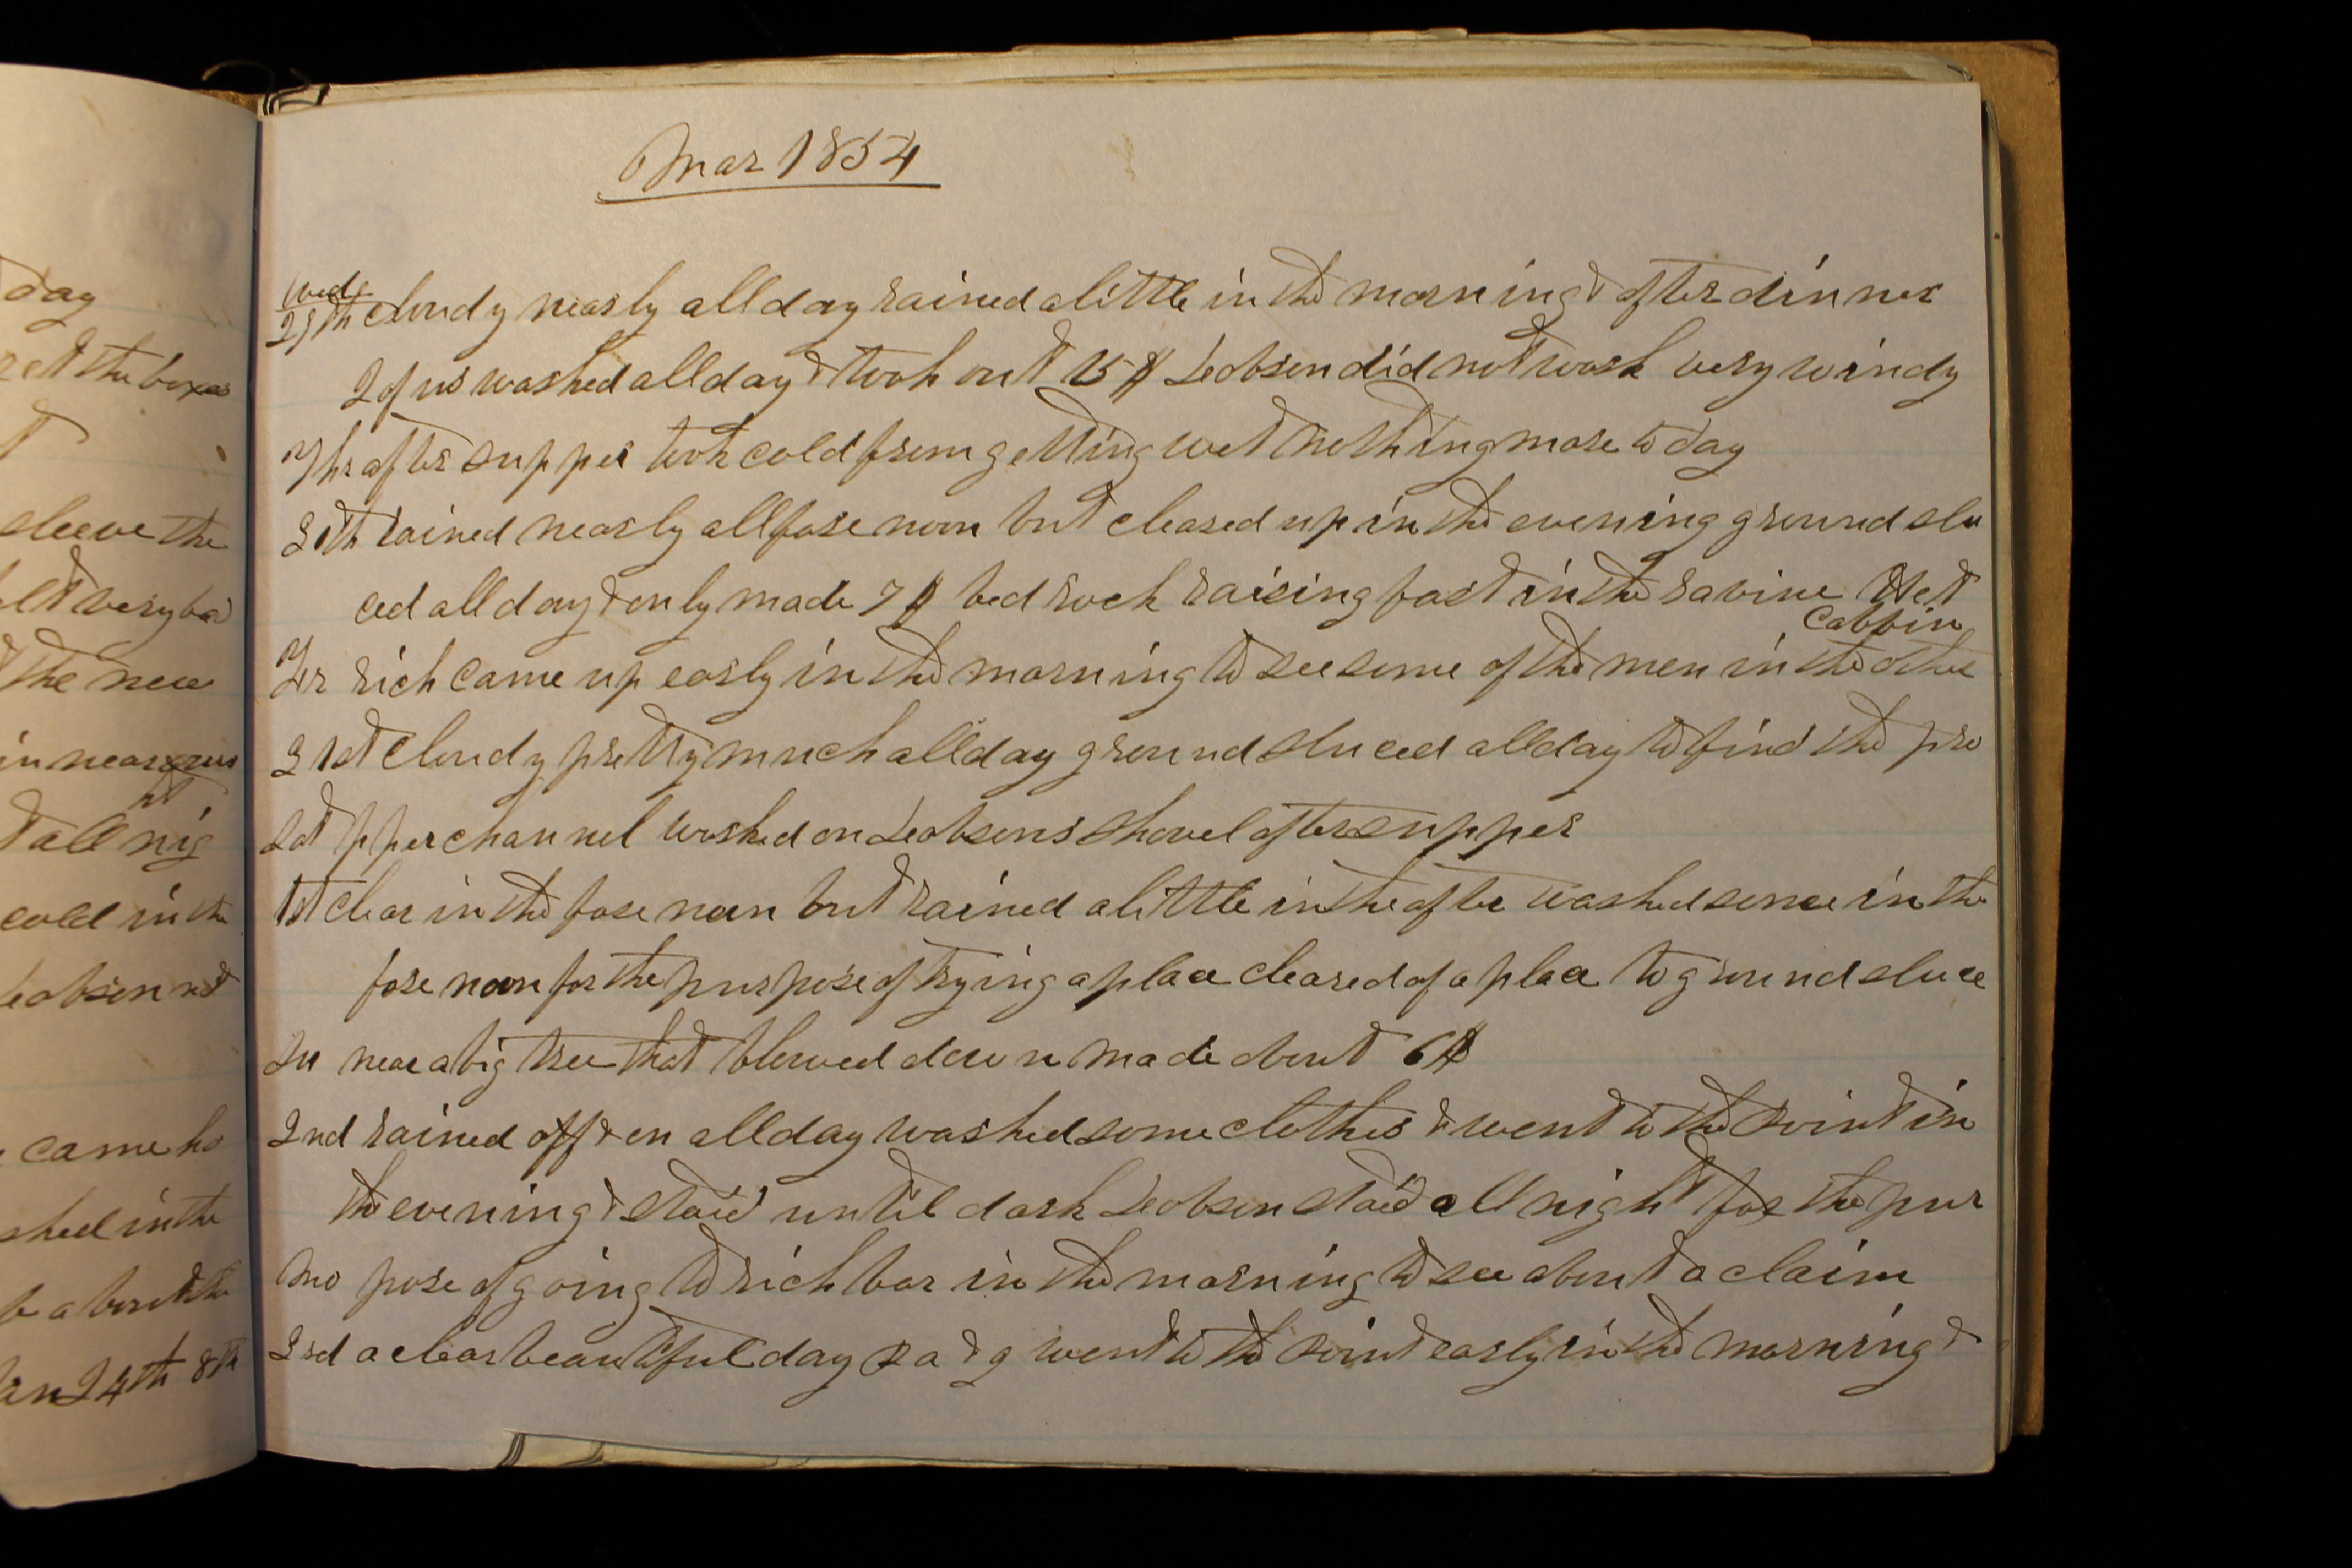 day
ret the boxes
t
sleeve the
elt very bad
t the new
in near our
ht
t all nig
cold in the
Jeobsen not
came ho
shed in the
be about the
Jan 24th 8th
Mar 1854
Weds
29th cloudy nearly all day rained a little in the morning & after dinner
2 of us washed all day & took out 15 $ Jeobsen did not wash very windy
Thr after supper took cold from getting wet nothing more to day
30th rained nearly all fore noon but cleared up in the evening ground slu
ced all day & only made 7 $ bed rock raising fast in the ravine Het
Cabbin
Fr rich came up early in the morning to see some of the men in the other
31st Cloudy pretty much all day ground sluced all day to find the pro
Sat pper channel worked on Jeobsens shovel after supper
1st clear in the fore noon but rained a little in the after washed some in the
fore noon for the purpose of trying a place cleared of a place to ground sluce
Su near a big tree that blowed down made about 6 $
2nd rained off & on all day washed some clothes & went to the point in
the evening & staid until dark Jeobsen staid all night for the pur
Mo pose of going to rich bar in the morning to see about a claim
3rd a clear beautiful day R a & g went to the point early in the morning &